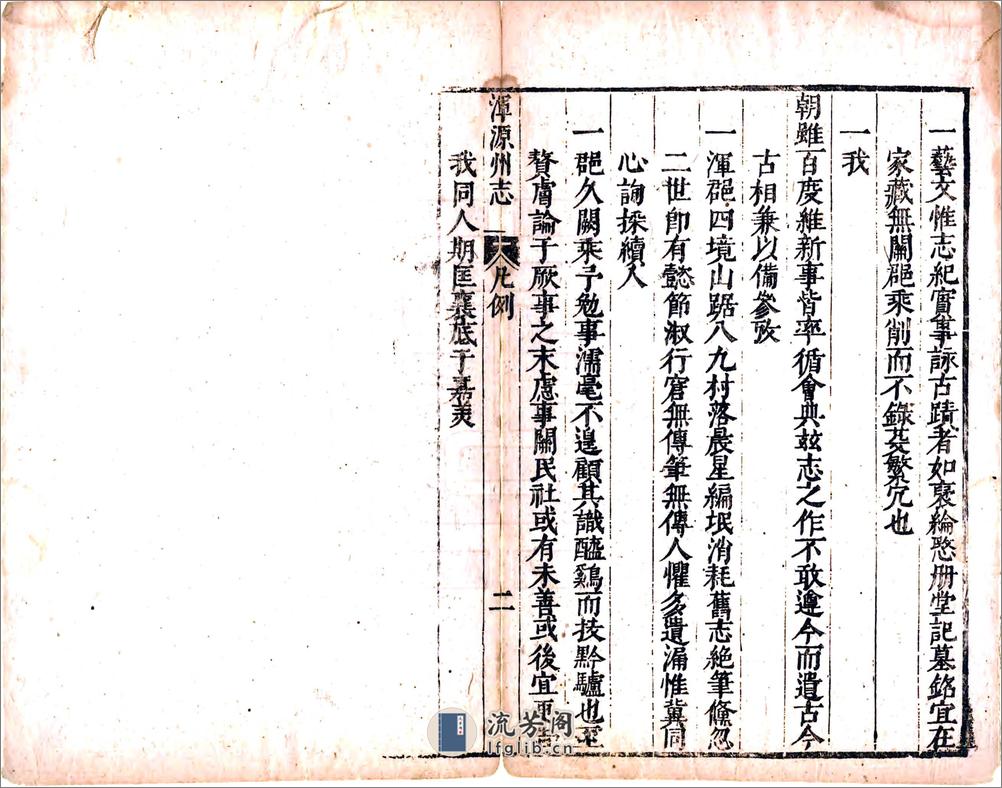 一藝文惟志紀實事詠古蹟者如褒綸愍册堂記墓銘宜在
家藏無關邑乘削而不錄芟繁冗也
一我
朝雖百度維新事皆率循會典玆志之作不敢遵今而遺古今
古相兼以備參攷
一渾邑四境山踞八九村落晨星編氓消耗舊志絶筆儵忽
二世卽有懿節淑行窘無傳筆無傳人懼多遺漏惟冀同
心詢採續入
一邑久闕乘予勉事濡毫不遑顧其識醯鷄而技黔驢也至
贅膚論于厥事之末慮事關民社或有未善或後宜更
渾源州志 凡例 二
我同人期匡襄底于嘉美
流芳阁
lfglib.cn